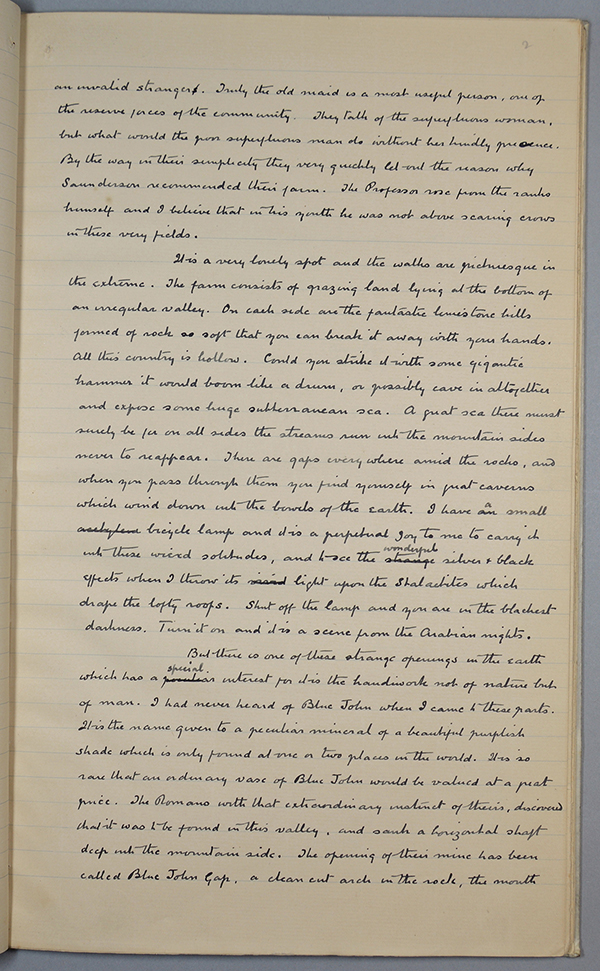 2
an invalid stranger. Truly the old maid is a most useful person, one of
the reserve forces of the community. They talk of the superfluous woman,
but what would the poor superfluous man do without her kindly presence.
By the way in their simplicity they very quickly let out the reason why
Saunderson recommended their farm. The Professor rose from the ranks
himself and I believe that in his youth he was not above scaring crows
in these very fields.
It is a very lonely spot and the walks are picturesque in
the extreme. The farm consists of grazing land lying at the bottom of
an irregular valley. On each side are the fantastic limestone hills
formed of rock so soft that you can break it away with your hands.
All this country is hollow. Could you strike it with some gigantic
hammer it would boom like a drum, or possibly cave in altogether
and expose some huge subterranean sea. A great sea there must
surely be for on all sides the streams run into the mountain sides
never to reappear. There are gaps everywhere amid the rocks, and
when you pass through them you find yourself in great caverns
which wind down into the bowels of the earth. I have an a small
acetylene bicycle lamp and it is a perpetual joy to me to carry it
into these wierd solitudes, and to see the strange wonderful silver & black
effects when I throw its light upon the stalactites which
drape the lofty roofs. Shut off the lamp and you are in the blackest
darkness. Turn it on and it is a scene from the Arabian nights.
But there is one of these strange openings in the earth
which has a peculiar special interest for it is the handiwork not of nature but
of man. I had never heard of Blue John when I came to these parts.
It is the name given to a peculiar mineral of a beautiful purplish
shade which is only found at one or two places in the world. It is so
rare that an ordinary vase of Blue John would be valued at a great
price. The Romans with that extraordinary instinct of theirs, discovered
that it was to be found in this valley, and sank a horizontal shaft
deep into the mountain side. The opening of their mine has been
called Blue John Gap, a clean cut arch in the rock, the mouth